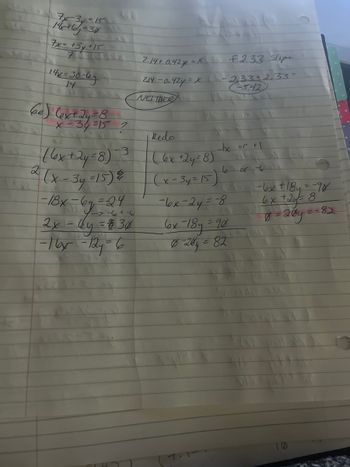 7x-3y=15
14x+6y=30
7x = +3y+15
7
14x = 30-6y
14
2.14+0.42y = x
2.14-0.42y = x
NEITHER
-2.33+2.33=
-5.42
6a) 6x+2y=8
x-3y=15 ?
(6x+2y=8) -3
2 (x-3y=15)
-18x-6y=24
2x-6y=30
-16x-12y=6
Redo
(6x+2y=8) 6x or +1
(x-3y=15) 6 or -6
-6x-2y=-8
6x-18y=90
0-20y=82
-6x+18y=-90
6x+2y=8
0=20y=-82